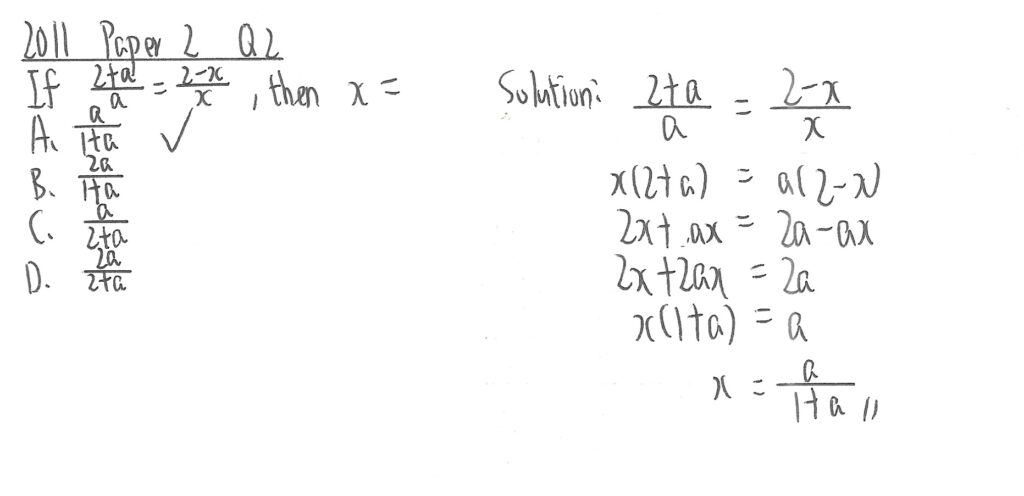 2011 Paper 2 Q2
If (2+a)/a = (2-x)/x, then x =
A. a/(1+a) ✓
B. 2a/(1+a)
C. a/(2+a)
D. 2a/(2+a)
Solution: (2+a)/a = (2-x)/x
x(2+a) = a(2-x)
2x+ax = 2a-ax
2x+2ax = 2a
x(1+a) = a
x = a/(1+a) //